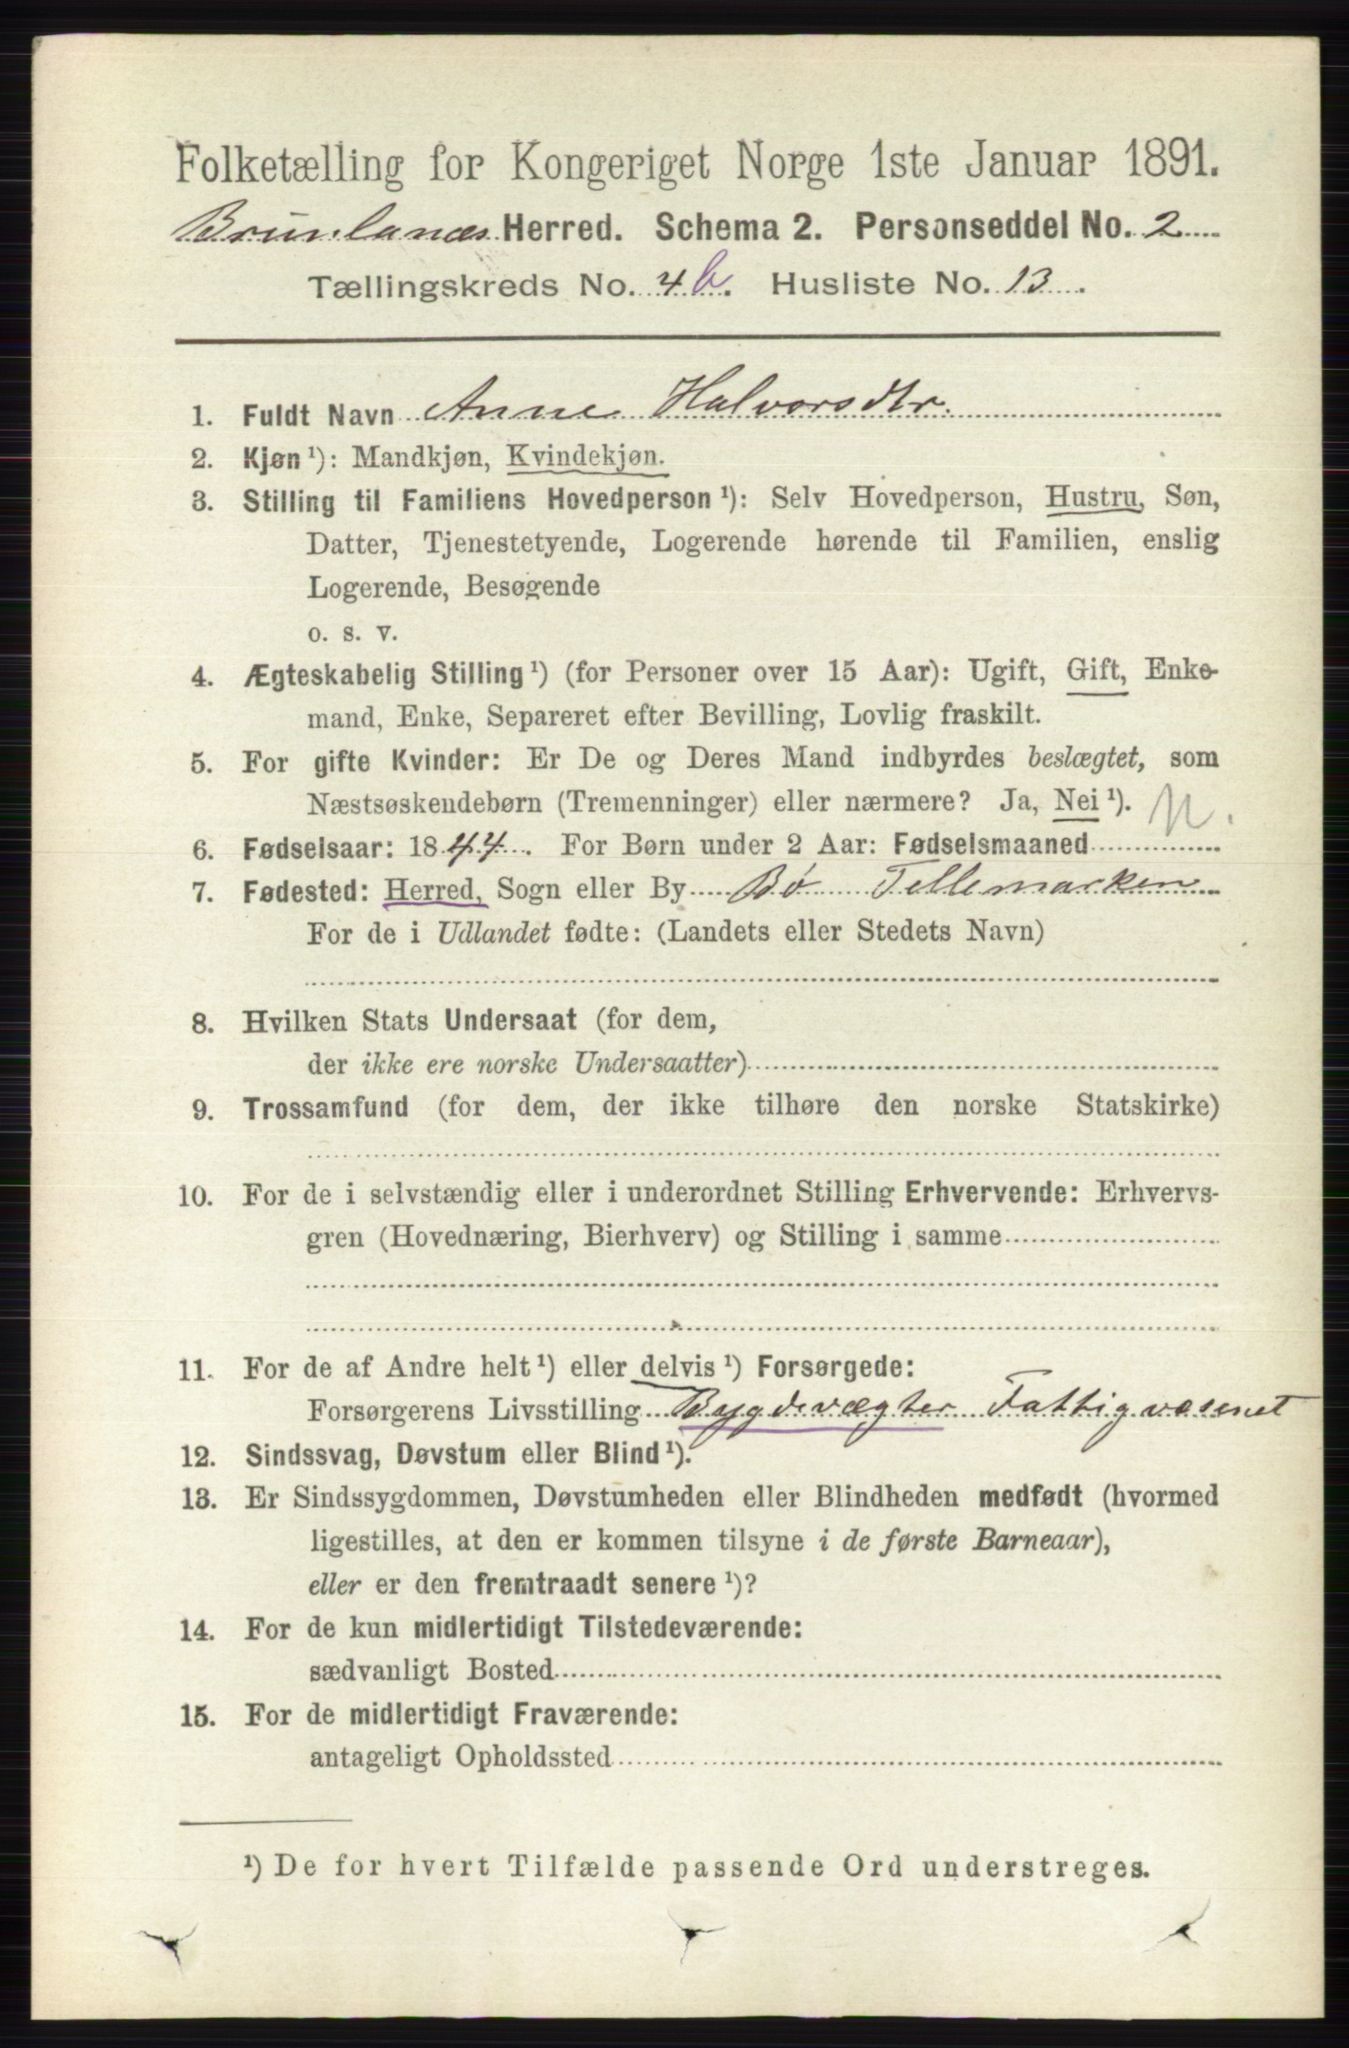 Folketælling for Kongeriget Norge 1ste Januar 1891.
Brunlanæs Herred. Schema 2. Personseddel No. 2
Tællingskreds No. 4b. Husliste No. 13.
1. Fuldt Navn Anne Halvorsdtr.
2. Kjøn ¹): Mandkjøn, Kvindekjøn.
3. Stilling til Familiens Hovedperson ¹): Selv Hovedperson, Hustru, Søn,
Datter, Tjenestetyende, Logerende hørende til Familien, enslig
Logerende, Besøgende
o. s. v.
4. Ægteskabelig Stilling ¹) (for Personer over 15 Aar): Ugift, Gift, Enke-
mand, Enke, Separeret efter Bevilling, Lovlig fraskilt.
5. For gifte Kvinder: Er De og Deres Mand indbyrdes beslægtet, som
Næstsøskendebørn (Tremenninger) eller nærmere? Ja, Nei ¹). N.
6. Fødselsaar: 1844. For Børn under 2 Aar: Fødselsmaaned
7. Fødested: Herred, Sogn eller By Bø Tellemarken
For de i Udlandet fødte: (Landets eller Stedets Navn)
8. Hvilken Stats Undersaat (for dem,
der ikke ere norske Undersaatter)
9. Trossamfund (for dem, der ikke tilhøre den norske Statskirke)
10. For de i selvstændig eller i underordnet Stilling Erhvervende: Erhvervs-
gren (Hovednæring, Bierhverv) og Stilling i samme
11. For de af Andre helt ¹) eller delvis ¹) Forsørgede:
Forsørgerens Livsstilling Bygdevægter Fattigvæsenet
12. Sindssvag, Døvstum eller Blind ¹).
13. Er Sindssygdommen, Døvstumheden eller Blindheden medfødt (hvormed
ligestilles, at den er kommen tilsyne i de første Barneaar),
eller er den fremtraadt senere ¹)?
14. For de kun midlertidigt Tilstedeværende:
sædvanligt Bosted
15. For de midlertidigt Fraværende:
antageligt Opholdssted
¹) De for hvert Tilfælde passende Ord understreges.